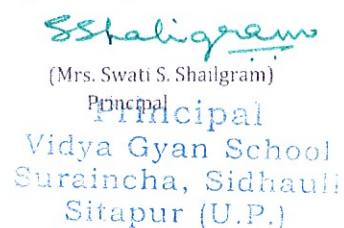 SShaligram
(Mrs. Swati S. Shailgram)
Principal
Principal
Vidya Gyan School
Suraincha, Sidhauli
Sitapur (U.P.)